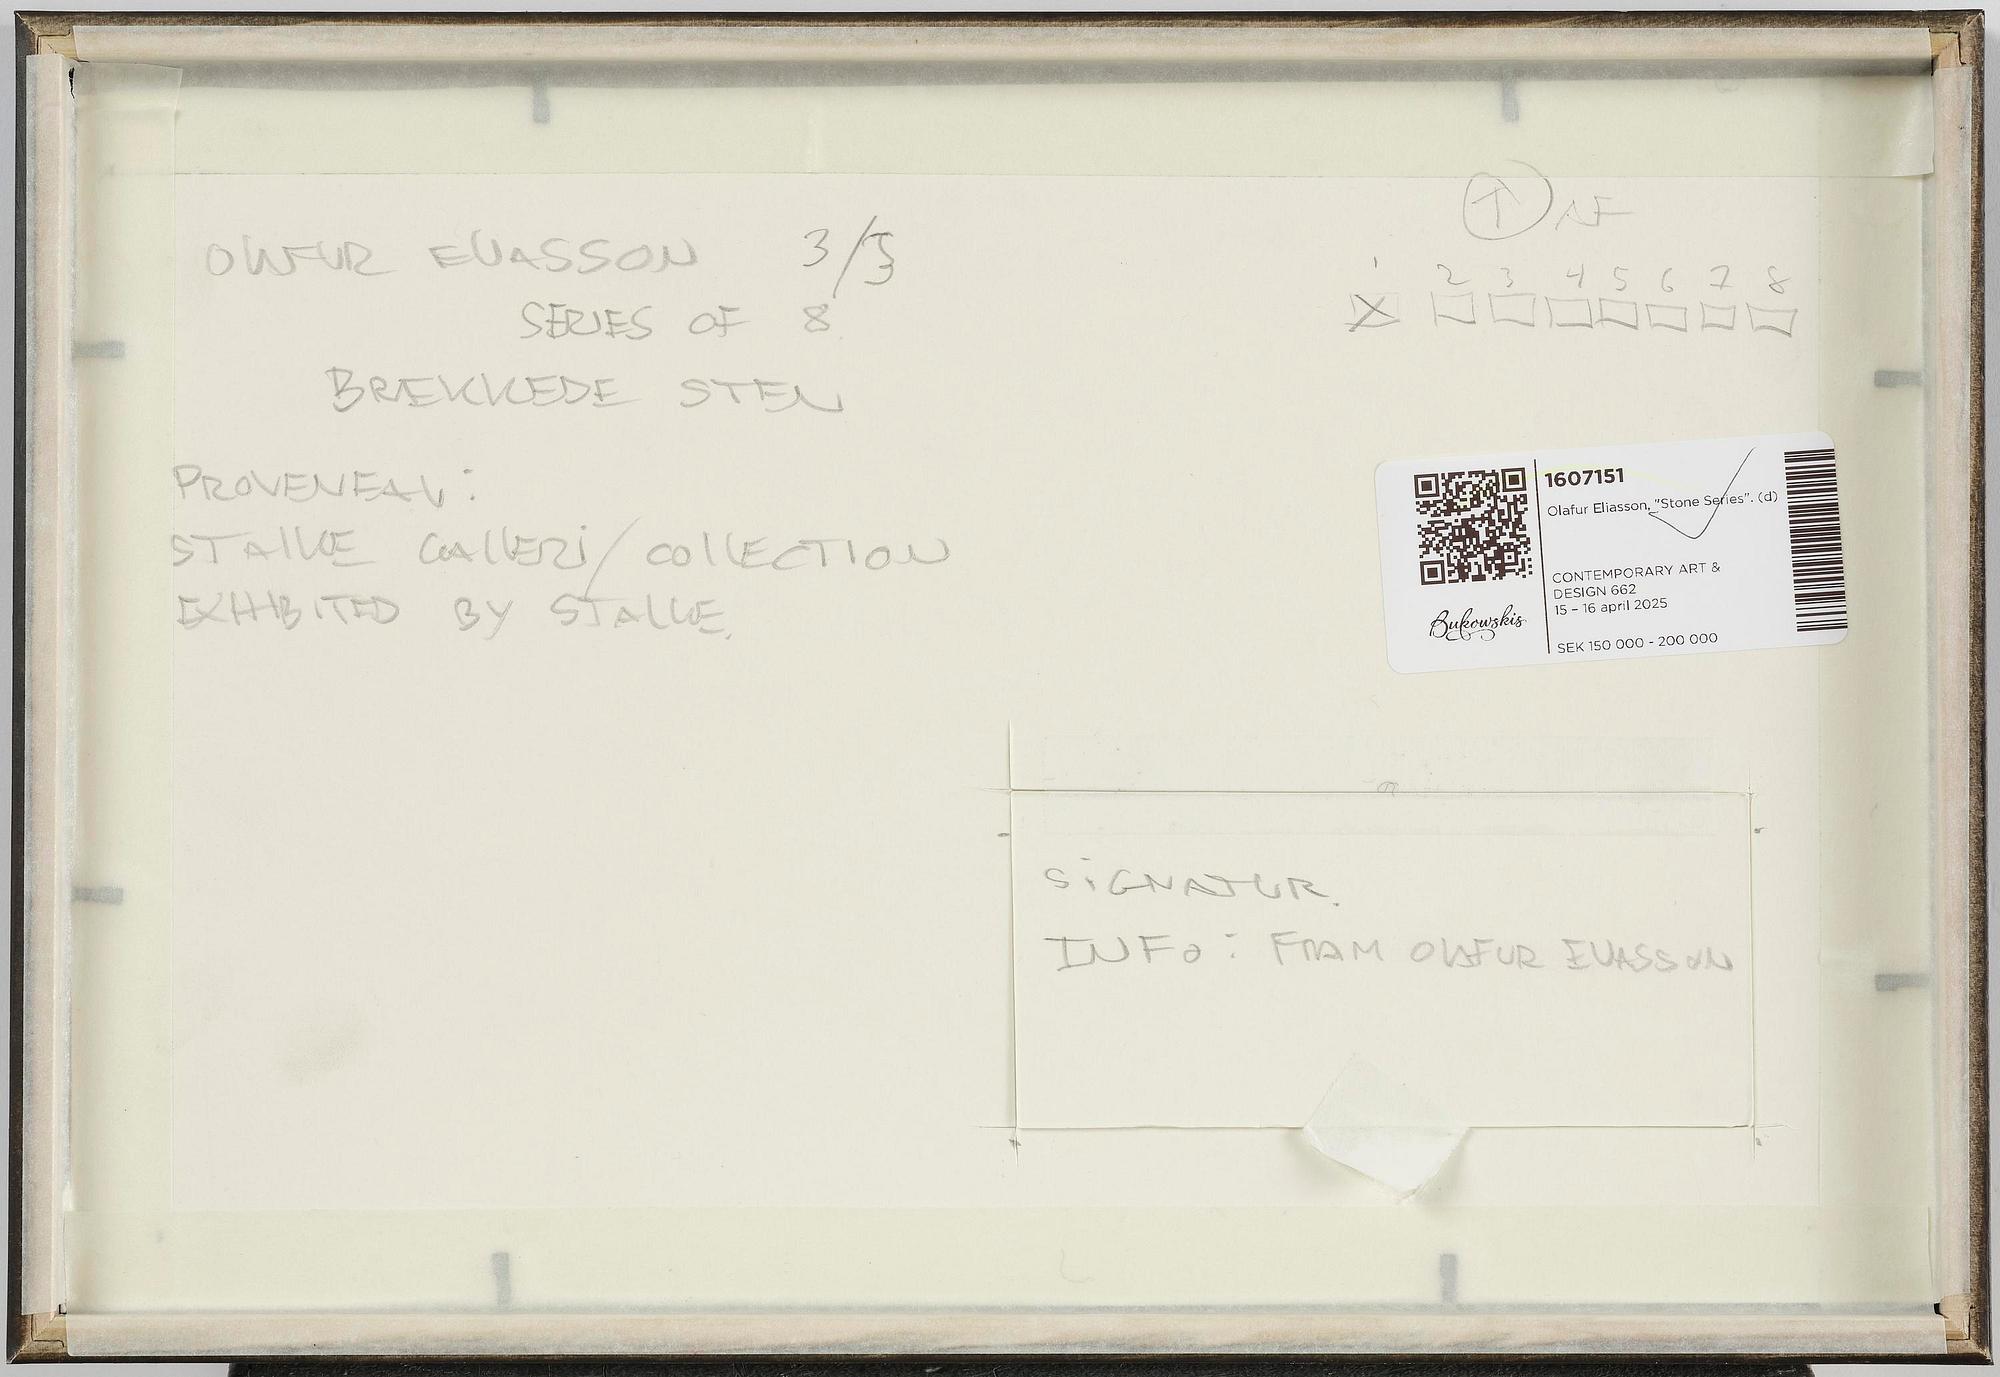 OLAFUR ELIASSON 3/3
SERIES OF 8
BRÆKKEDE STEN
PROVENEAN:
STALKE GALLERI/COLLECTION
EXHIBITED BY STALKE.
↑
1 2 3 4 5 6 7 8
X
1607151
Olafur Eliasson, "Stone Series". (d)
CONTEMPORARY ART &
DESIGN 662
15 – 16 april 2025
SEK 150 000 - 200 000
Bukowskis
SIGNATUR.
INFO: FRAM OLAFUR ELIASSON